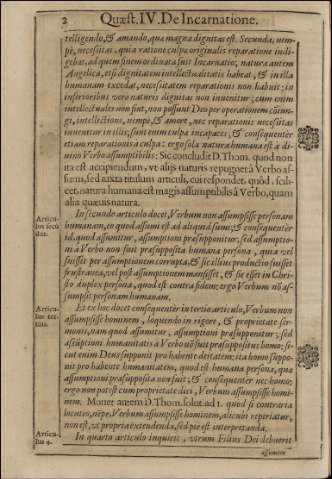 2 Quæst. IV. De Incarnatione.
telligendo, & amando, quæ magna dignitas est. Secunda, nem-
pè, necessitas, quia ratione culpæ originalis reparatione indi-
gebat, ad quem finem ordinata fuit Incarnatio, natura autem
Angelica, etsi dignitatem intellectualitatis habeat, & in illa
humanam excedat, necessitatem reparationis non habuit: in
inferioribus verò naturis dignitas non invenitur, cùm enim
intellectuales non sint, non possunt Deo per operationem cōiun-
gi, intellectione, nimpè, & amore, nec reparationis necessitas
invenitur in illis, sunt enim culpæ incapaces, & consequentèr
etiam reparationis à culpa: ergo sola natura humana est à di-
vino Verbo assumptibilis: Sic concludit D. Thom. quod non
ita est accipiendum, vt alijs naturis repugnet à Verbo as-
sumi, sed iuxta titulum articuli, cui respondet, quòd, scili-
cet, natura humana est magis assumptibilis à Verbo, quam
alia quævis natura.
Articu-
lus secũ-
dus.
In secundo articulo docet, Verbum non assumpsisse personam
humanam, eo quòd assumi est ad aliquid sumi: & consequentèr
id, quod assumitur, assumptioni præsupponitur, sed assumpti-
oni à Verbo non fuit præsupposita humana persona, quia vel
fuisset per assumptionem corrupta, & sic illius productio fuisset
frustranea, vel post assumptionem mansisset, & sic esset in Chri-
sto duplex persona, quod est contra fidem: ergo Verbum nō as-
sumpsit personam humanam.
Articu-
lus ter-
tius.
Et ex hoc docet consequenter in tertio articulo, Verbum non
assumpsisse hominem, loquendo in rigore, & proprietate ser-
monis, nam quod assumitur, assumptioni præsupponitur, sed
assūptioni humanitatis à Verbo nō fuit præsuppositus homo: si-
cut enim Deus supponit pro habente deitatem: ita homo suppo-
nit pro habente humanitatem, quod est humana persona, quæ
assumptioni præsupposita non fuit, & consequenter nec homo:
ergo non potest cum proprietate dici, Verbum assumpsisse homi-
nem. Monet autem D. Thom. solut. ad 1. quòd si contraria
locutio, nēpe, Verbum assumpsisse hominem, alicubi reperiatur,
non est, vt propria extendenda, sed piè est interpretanda.
Articu-
lus 4.
In quarto articulo inquirit, vtrum Filius Dei debuerit
assumere